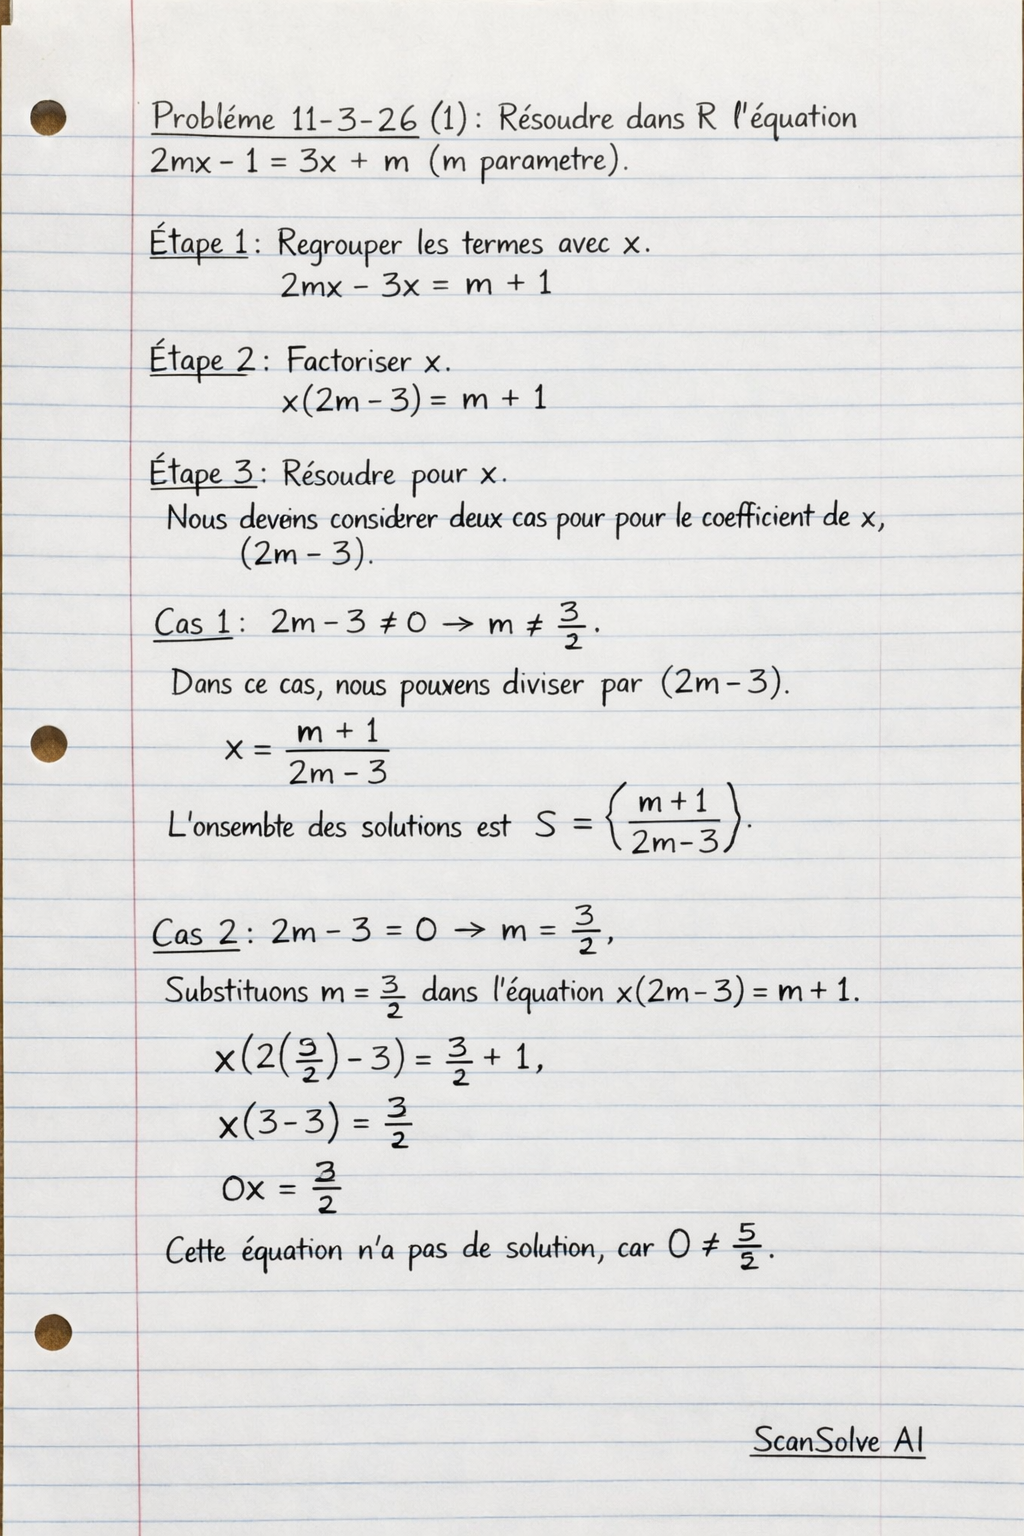 Probléme 11-3-26 (1): Résoudre dans R l'équation
2mx - 1 = 3x + m (m parametre).
Étape 1: Regrouper les termes avec x.
2mx - 3x = m + 1
Étape 2: Factoriser x.
x(2m - 3) = m + 1
Étape 3: Résoudre pour x.
Nous devons considérer deux cas pour pour le coefficient de x,
(2m - 3).
Cas 1: 2m - 3 ≠ 0 → m ≠ 3/2.
Dans ce cas, nous pouvens diviser par (2m - 3).
x = (m + 1)/(2m - 3)
L'onsembte des solutions est S = {(m + 1)/(2m - 3)}.
Cas 2: 2m - 3 = 0 → m = 3/2,
Substituons m = 3/2 dans l'équation x(2m - 3) = m + 1.
x(2(3/2) - 3) = 3/2 + 1,
x(3 - 3) = 3/2
0x = 3/2
Cette équation n'a pas de solution, car 0 ≠ 5/2.
ScanSolve AI